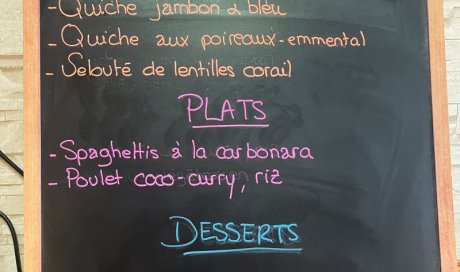 - Quiche jambon & bleu
- Quiche aux poireaux - emmental
- Velouté de lentilles corail
PLATS
- Spaghettis à la carbonara
- Poulet coco-curry, riz
DESSERTS